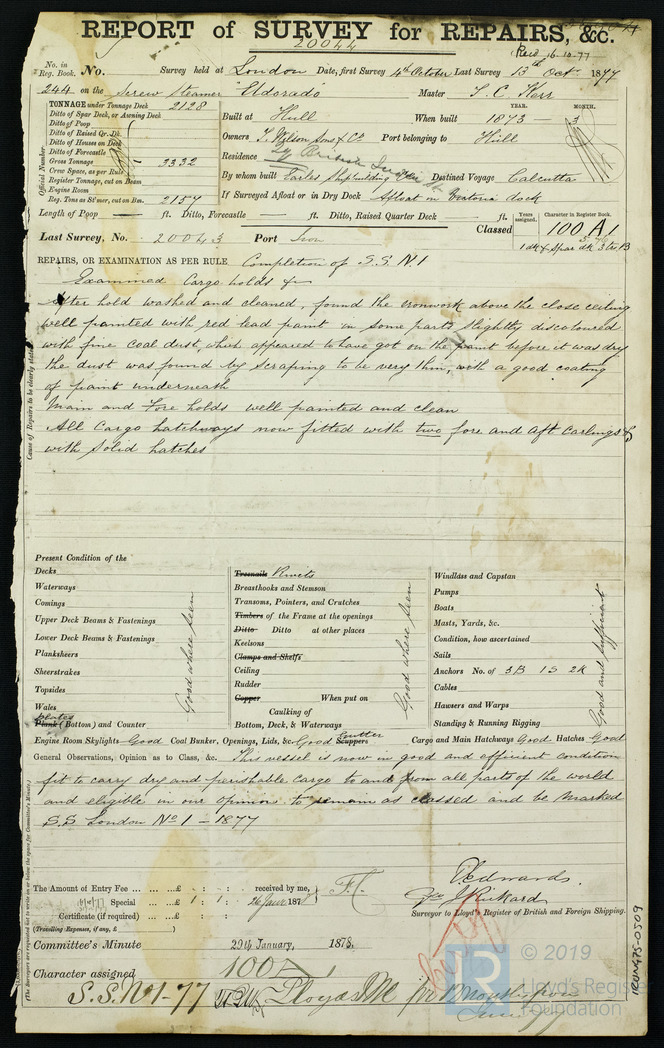 REPORT of SURVEY for REPAIRS, &c.
20044
(Recd 16-10-77
No. in Reg. Book. No. Survey held at London Date, first Survey 4th October Last Survey 13th Oct 1877
244 on the Screw Steamer Eldorado Master T. C. Kerr
TONNAGE under Tonnage Deck 2128
Ditto of Spar Deck, or Awning Deck
Ditto of Poop
Ditto of Raised Qr. Dk.
Ditto of Houses on Deck
Ditto of Forecastle
Gross Tonnage 3332
Crew Space, as per Rule
Register Tonnage, cut on Beam
Engine Room
Reg. Tons as St'mer, cut on Bm. 2157
Official Number
YEAR. MONTH.
Built at Hull When built 1873 - 3
Owners T. Wilson Sons & Co Port belonging to Hull
Residence
By whom built Earles Shipbuilding Destined Voyage Calcutta
If Surveyed Afloat or in Dry Dock Afloat in Victoria dock
Length of Poop ft. Ditto, Forecastle ft. Ditto, Raised Quarter Deck ft.
Years assigned. Character in Register Book.
Last Survey, No. 20043 Port Iron Classed 100 A1
1 dk & Spar dk 3 tr B
REPAIRS, OR EXAMINATION AS PER RULE Completion of S.S. N.1
Examined Cargo holds &
After hold washed and cleaned, found the ironwork above the close ceiling
well painted with red lead paint in some parts slightly discoloured
with fine coal dust, which appeared to have got on the paint before it was dry
the dust was found by scraping to be very thin, with a good coating
of paint underneath
Main and Fore holds well painted and clean
All Cargo hatchways now fitted with two fore and aft Carlings &
with solid hatches
Cause of Repairs to be clearly stated
Present Condition of the
Decks
Waterways
Comings
Upper Deck Beams & Fastenings
Lower Deck Beams & Fastenings
Planksheers
Sheerstrakes
Topsides
Wales
plates
Plank (Bottom) and Counter
Good where seen
Treenails Rivets
Breasthooks and Stemson
Transoms, Pointers, and Crutches
Timbers of the Frame at the openings
Ditto Ditto at other places
Keelsons
Clamps and Shelfs
Ceiling
Rudder
Copper When put on
Caulking of
Bottom, Deck, & Waterways
Good where seen
Windlass and Capstan
Pumps
Boats
Masts, Yards, &c.
Condition, how ascertained
Sails
Anchors No. of 3B 1S 2K
Cables
Hawsers and Warps
Standing & Running Rigging
Good and sufficient
Engine Room Skylights Good Coal Bunker, Openings, Lids, &c. Good Scuppers Cargo and Main Hatchways Good Hatches Good
General Observations, Opinion as to Class, &c. This vessel is now in good and efficient condition
fit to carry dry and perishable Cargo to and from all parts of the world
and eligible in our opinion to remain as classed and be marked
S.S. London No 1 - 1877
The Amount of Entry Fee £ : : received by me,
Special £ 1 : 1 : 26 Janr 1878
Certificate (if required) £ : :
(Travelling Expenses, if any, £ )
Edwards
J Rickard
Surveyor to Lloyd's Register of British and Foreign Shipping.
Committee's Minute 29th January, 1878.
Character assigned 100 A 1
S.S. No 1-77 Lloyds
HUN425-0509
© 2019
Lloyd's Register
Foundation